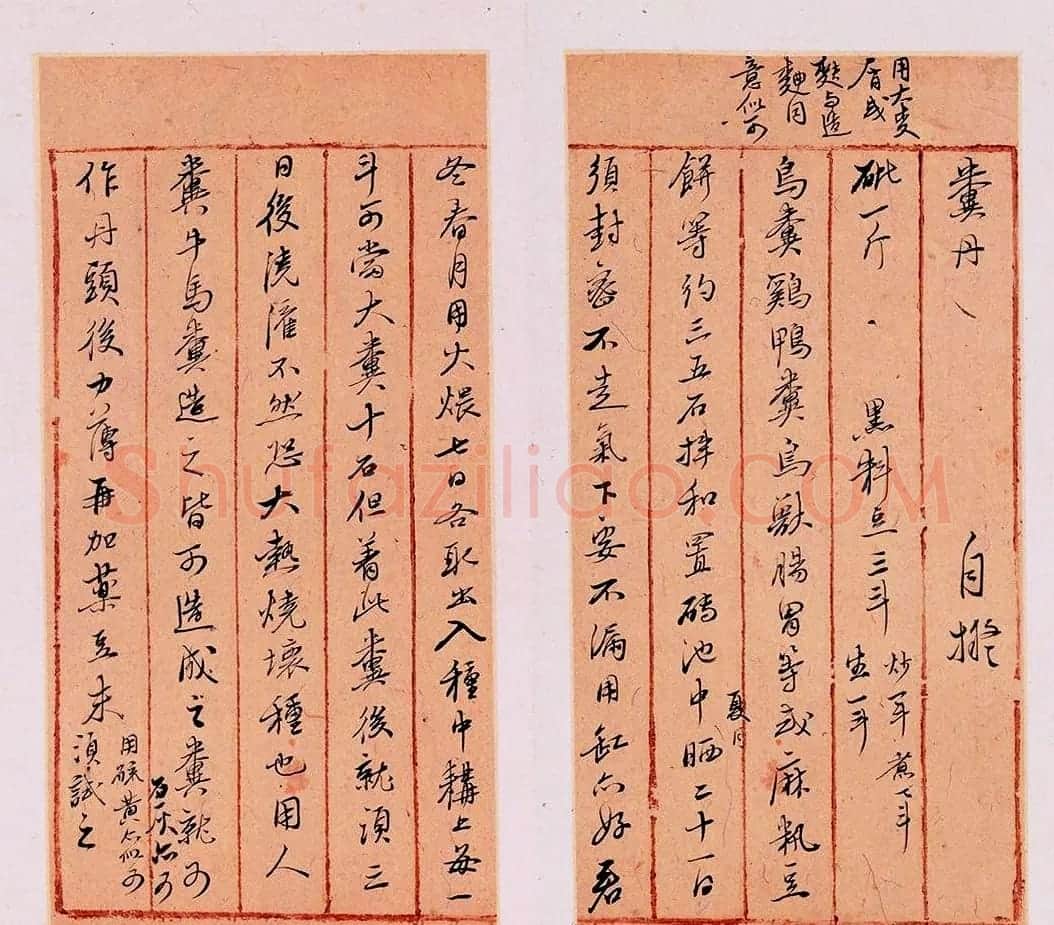 用大麦
屑或
麩与造
麯同
意似可
糞丹 自擬
砒一斤 黑料豆三斗 炒一斗 煮一斗
生一斗
鳥糞鷄鴨糞鳥獸腸胃等或麻籸豆
餅等約三五石拌和置磚池中晒二十一日
夏月
須封密不走氣下要不漏用缸亦好若
冬春月用火煨七日各取出入種中耩上每一
斗可當大糞十石但着此糞後就須三
日後澆灌不然恐大熱燒壞種也用人
糞牛馬糞造之皆可造成之糞就可
石灰亦可
作丹頭後力薄再加藥豆末
用硫黄亦似可
須試之
Shufaziliao.COM